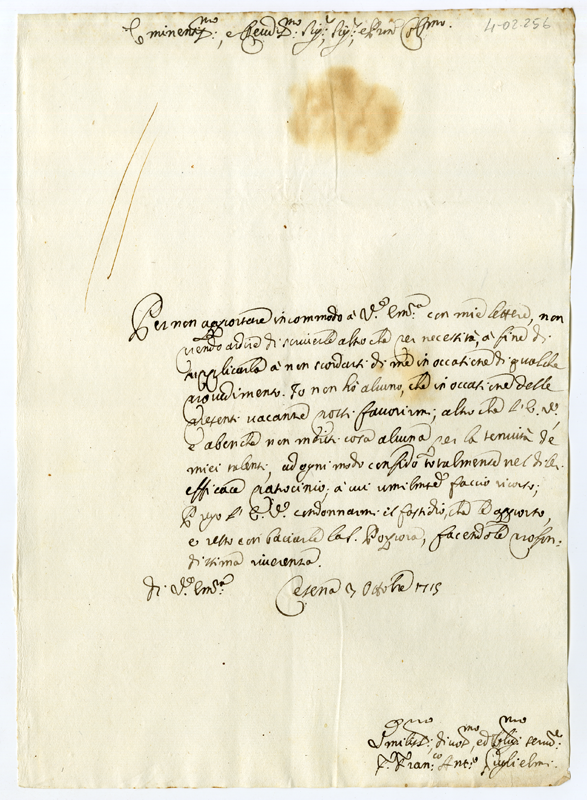 4-02.256
Eminent.mo, e Reud.mo Sig.r, Sig.r, e Pron Col.mo.
Per non apportare incommodo à V.a Em.a con mie lettere, non
prendo ardire di scriverle altro che per necessità, a fine di
supplicarla à non scordarsi di me in occatione di qualche
provedimento. Io non hò alcuno, che in occatione delle
presenti vacanze possi favorirmi, altro che l'E. V.
e abenche non meriti cosa alcuna per la tenuità de
miei talenti, ad ogni modo confido totalmente nel di lei
efficace patrocinio, à cui umilmte faccio ricorso;
Prego l'E. V. condonnarmi il fastidio, che le apporto,
e resto con baciarle la S. Porpora, facendole profon:
dissima riverenza.
di V.a Em.a Cesena 3 Ottobre 1715
Umiliss.mo, divot.mo, ed obligmo serv.e
F. Fran.co Ant.o Guglielmi.